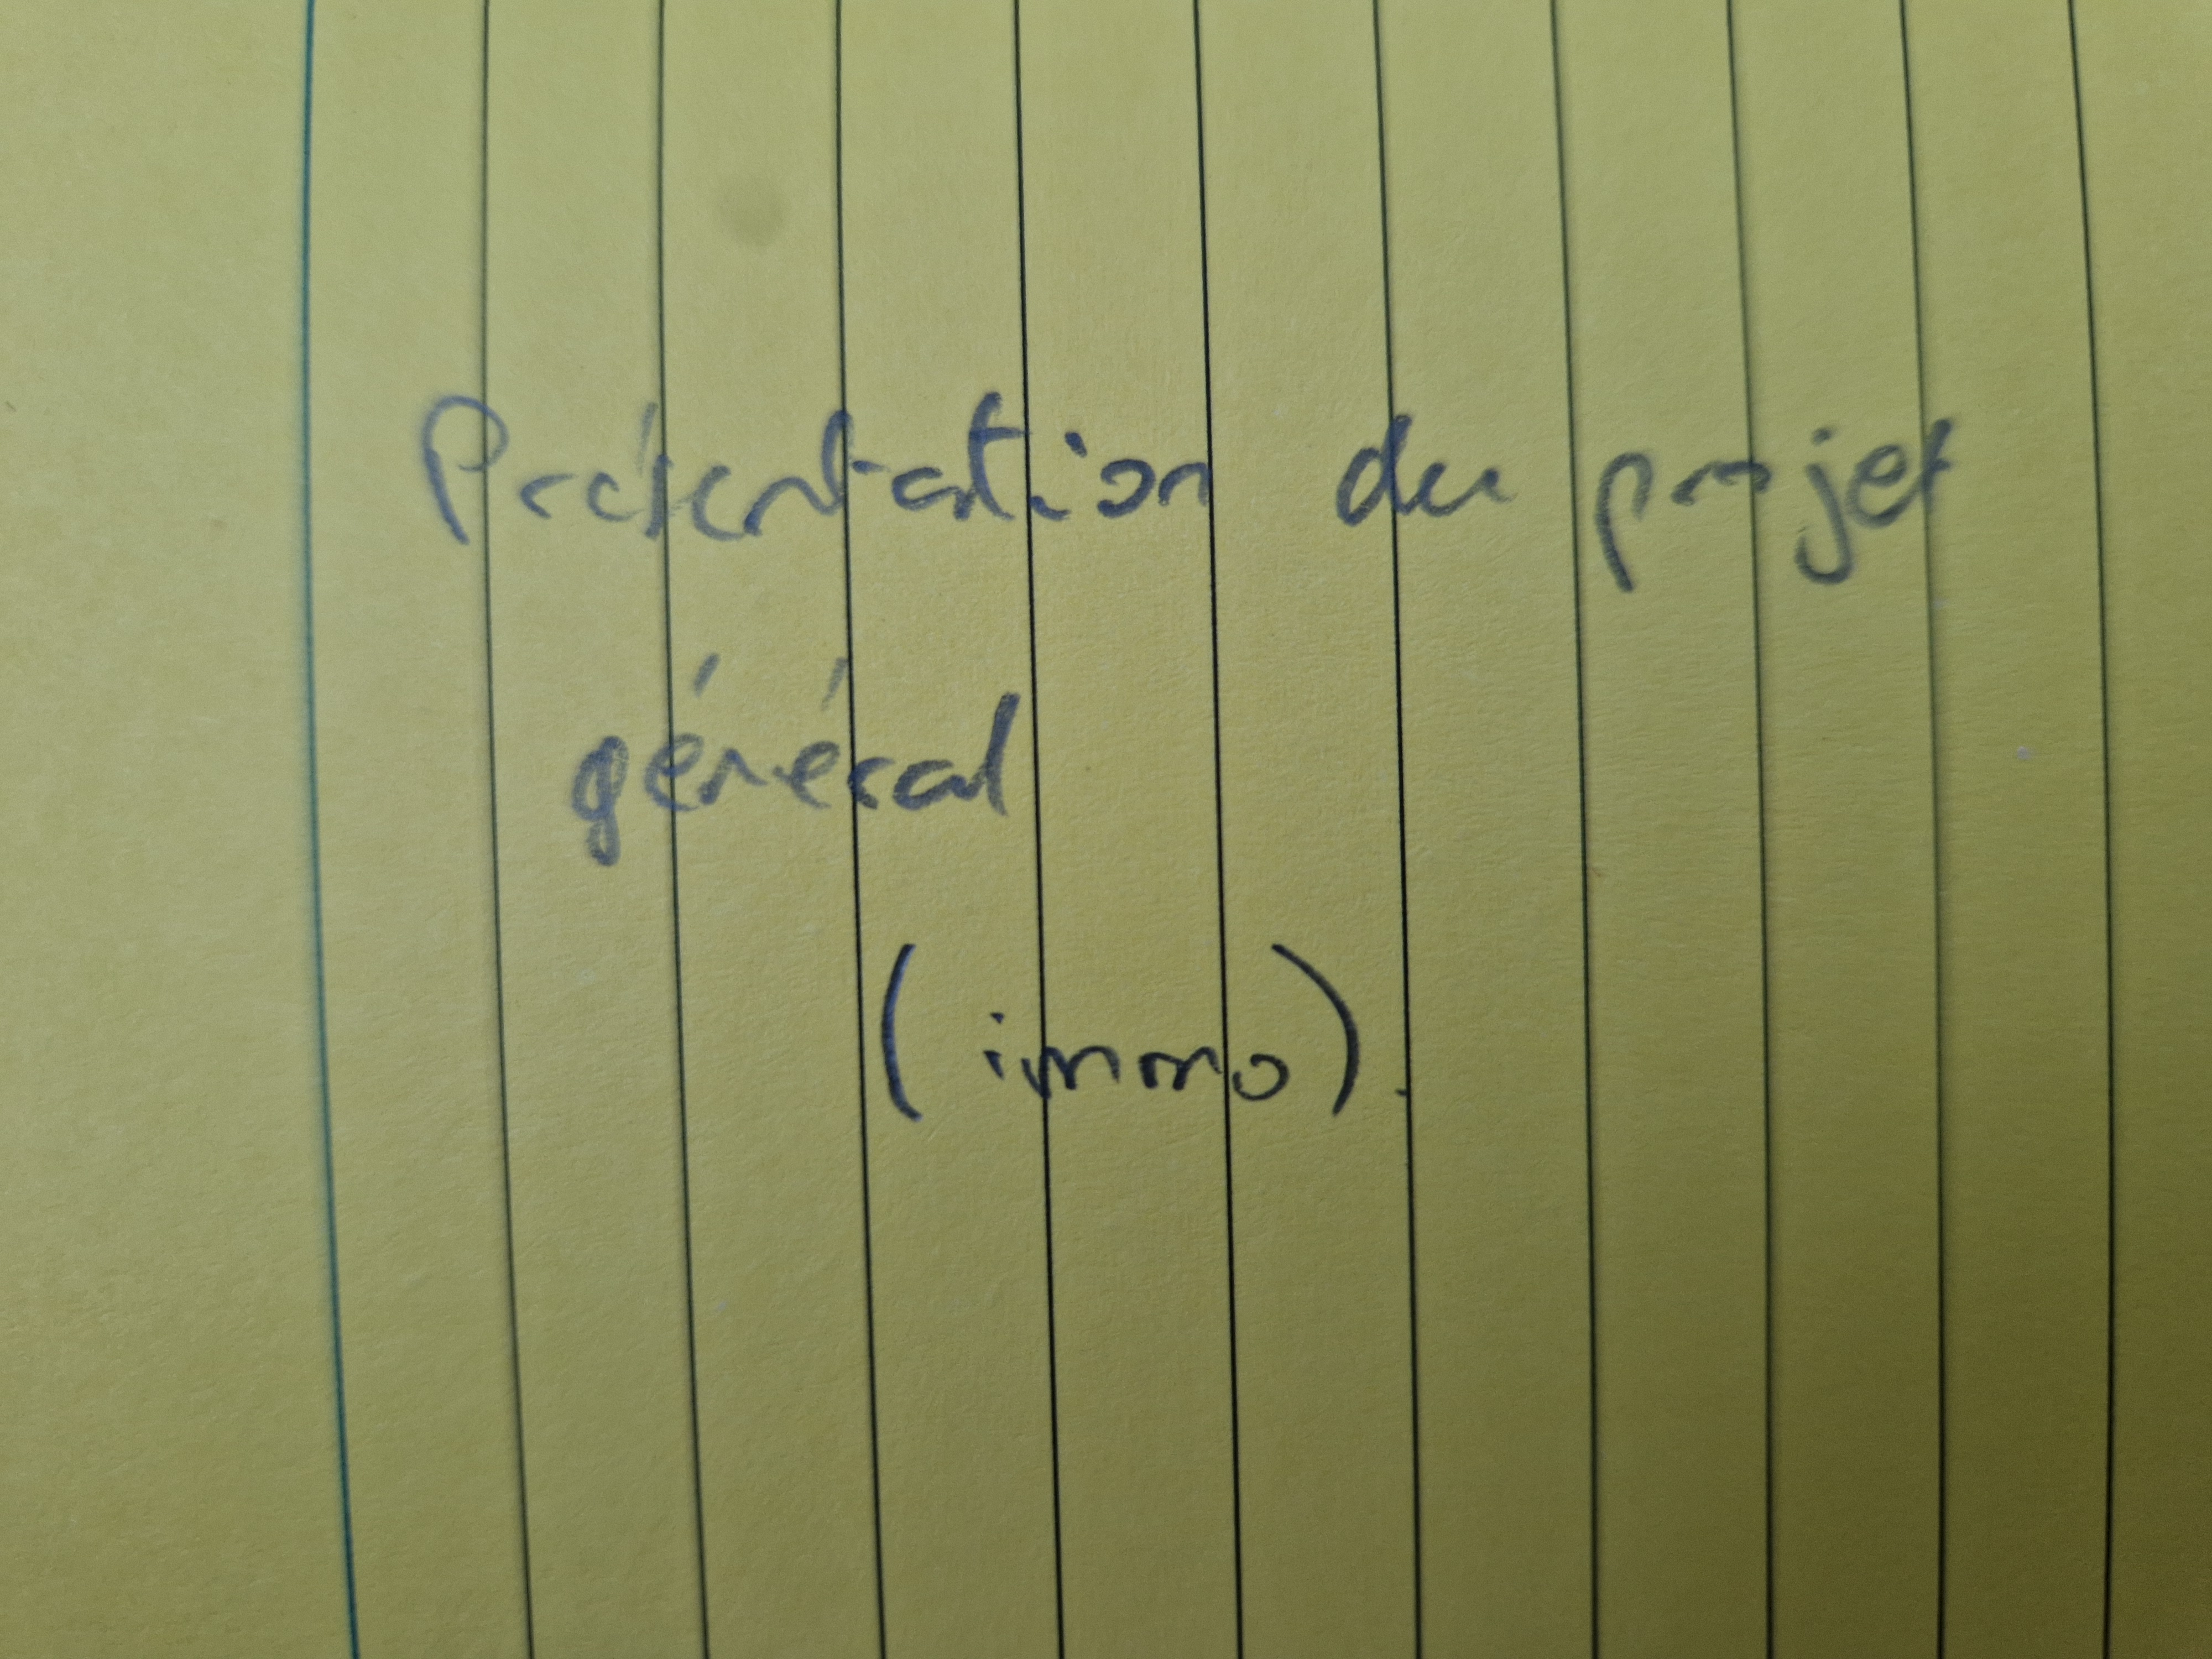 Présentation du projet
général
(immo).